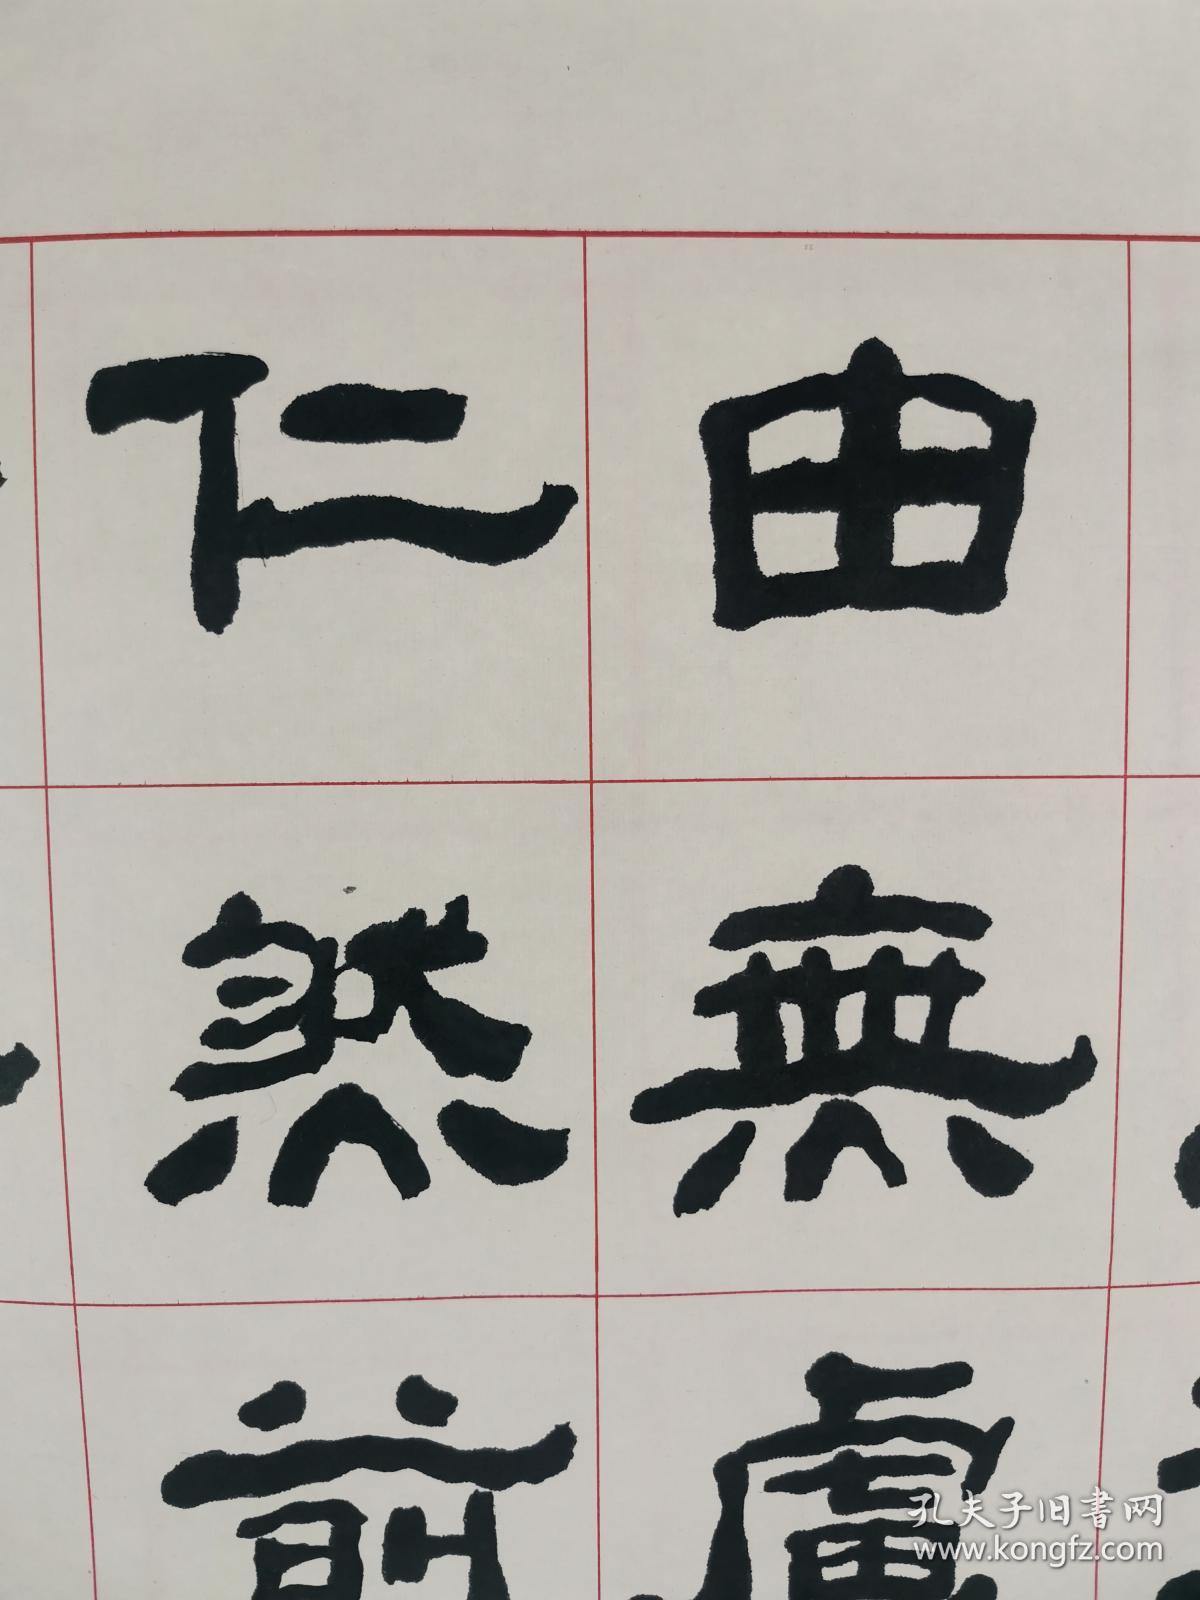 由無慮
仁然前
孔夫子旧書网
www.kongfz.com